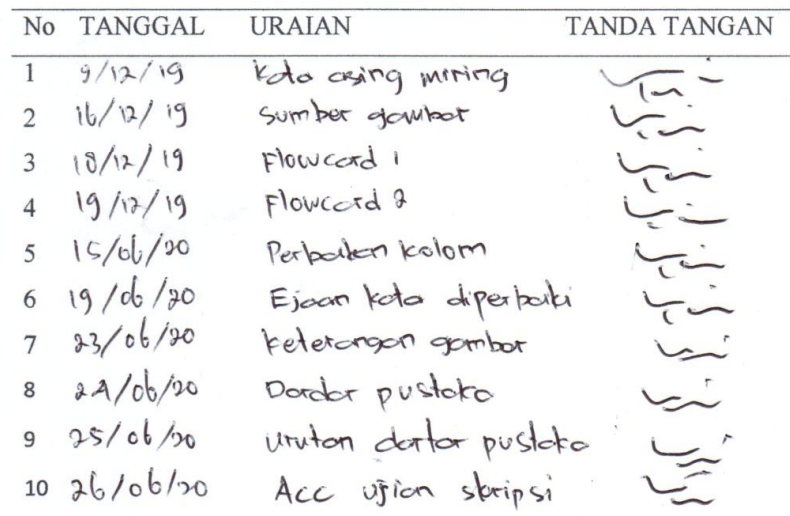 No TANGGAL URAIAN TANDA TANGAN
1 9/12/19 Kata asing miring
2 16/12/19 Sumber gambar
3 18/12/19 Flowcard 1
4 19/12/19 Flowcard 2
5 15/06/20 Perbaikan kolom
6 19/06/20 Ejaan kata diperbaiki
7 23/06/20 keterangan gambar
8 24/06/20 Dardar pustaka
9 25/06/20 Urutan dartar pustaka
10 26/06/20 Acc ujian skripsi